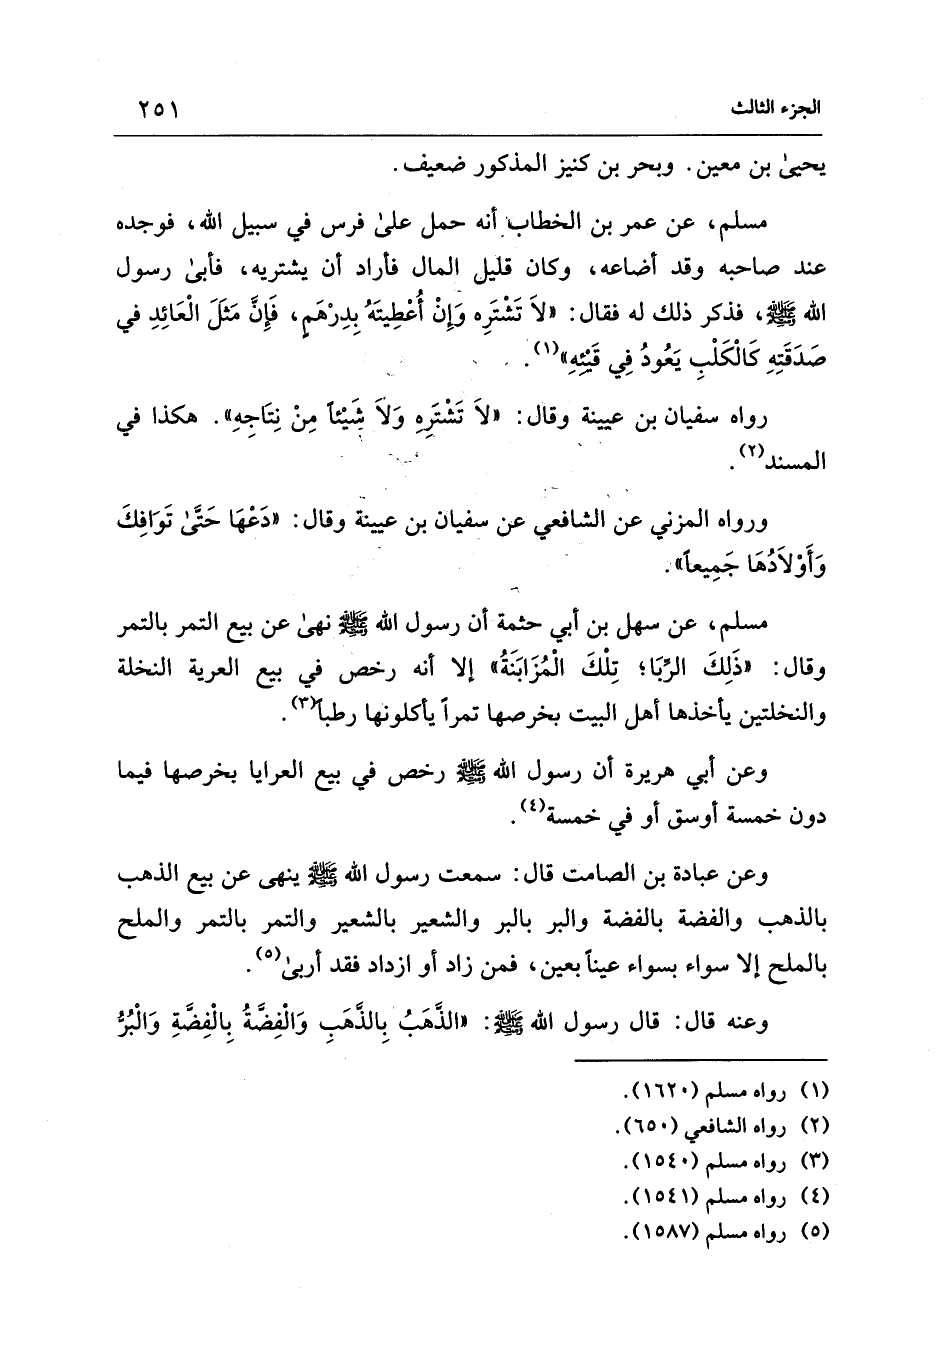 الجزء الثالث ٢٥١
يحيىٰ بن معين. وبحر بن كنيز المذكور ضعيف.
مسلم، عن عمر بن الخطاب أنه حمل علىٰ فرس في سبيل الله، فوجده
عند صاحبه وقد أضاعه، وكان قليل المال فأراد أن يشتريه، فأبىٰ رسول
الله ﷺ، فذكر ذلك له فقال: «لاَ تَشْتَرِهِ وَإِنْ أُعْطِيتَهُ بِدِرْهَمٍ، فَإِنَّ مَثَلَ الْعَائِدِ في
صَدَقَتِهِ كَالْكَلْبِ يَعُودُ فِي قَيْئِهِ»(١).
رواه سفيان بن عيينة وقال: «لاَ تَشْتَرِهِ وَلاَ شَيْئاً مِنْ نِتَاجِهِ». هكذا في
المسند(٢).
ورواه المزني عن الشافعي عن سفيان بن عيينة وقال: «دَعْهَا حَتَّىٰ تَوَافِكَ
وَأَوْلاَدُهَا جَمِيعاً».
مسلم، عن سهل بن أبي حثمة أن رسول الله ﷺ نهىٰ عن بيع التمر بالتمر
وقال: «ذَلِكَ الرِّبَا؛ تِلْكَ الْمُزَابَنَةُ» إلا أنه رخص في بيع العرية النخلة
والنخلتين يأخذها أهل البيت بخرصها تمراً يأكلونها رطباً(٣).
وعن أبي هريرة أن رسول الله ﷺ رخص في بيع العرايا بخرصها فيما
دون خمسة أوسق أو في خمسة(٤).
وعن عبادة بن الصامت قال: سمعت رسول الله ﷺ ينهى عن بيع الذهب
بالذهب والفضة بالفضة والبر بالبر والشعير بالشعير والتمر بالتمر والملح
بالملح إلا سواء بسواء عيناً بعين، فمن زاد أو ازداد فقد أربىٰ(٥).
وعنه قال: قال رسول الله ﷺ: «الذَّهَبُ بِالذَّهَبِ وَالْفِضَّةُ بِالْفِضَّةِ وَالْبُرُّ
(١) رواه مسلم (١٦٢٠).
(٢) رواه الشافعي (٦٥٠).
(٣) رواه مسلم (١٥٤٠).
(٤) رواه مسلم (١٥٤١).
(٥) رواه مسلم (١٥٨٧).